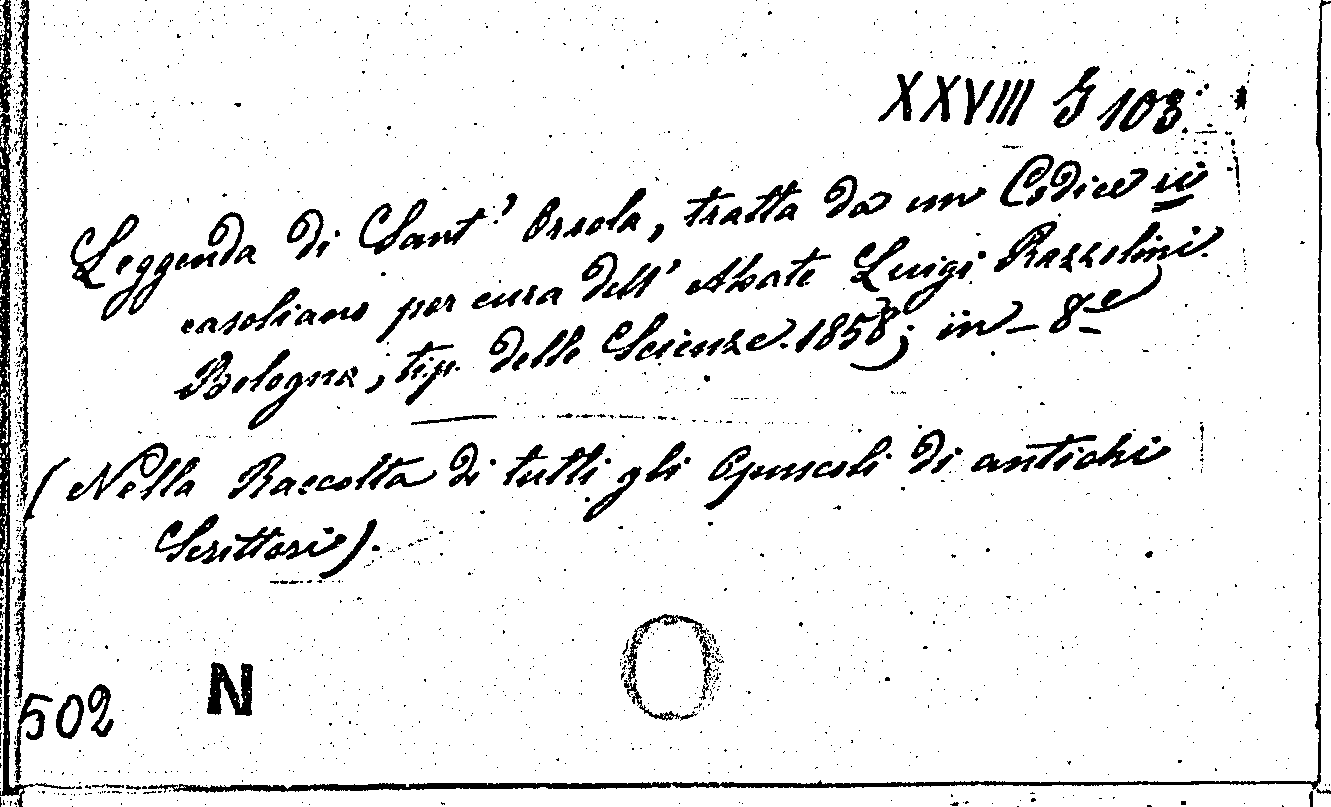 XXVIII G 103.
Leggenda di Sant' Orsola, tratta da un Codice
casoliano per cura dell' Abate Luigi Razzolini.
Bologna, tip. delle Scienze. 1858; in-8º
(Nella Raccolta di tutti gli Opuscoli di antichi
Scrittori).
502 N